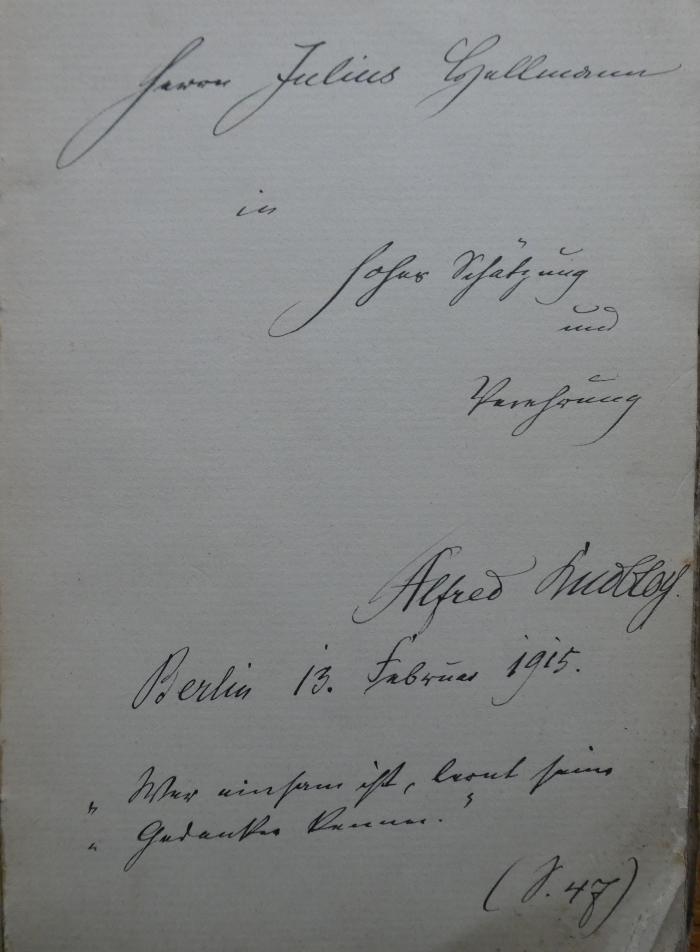 Herrn Julius Hellmann
in
hoher Schätzung
und
Verehrung
Alfred
Berlin 13. Februar 1915.
„ Wer einsam ist, lernt seine
„ Gedanken kennen.“
(S. 47)